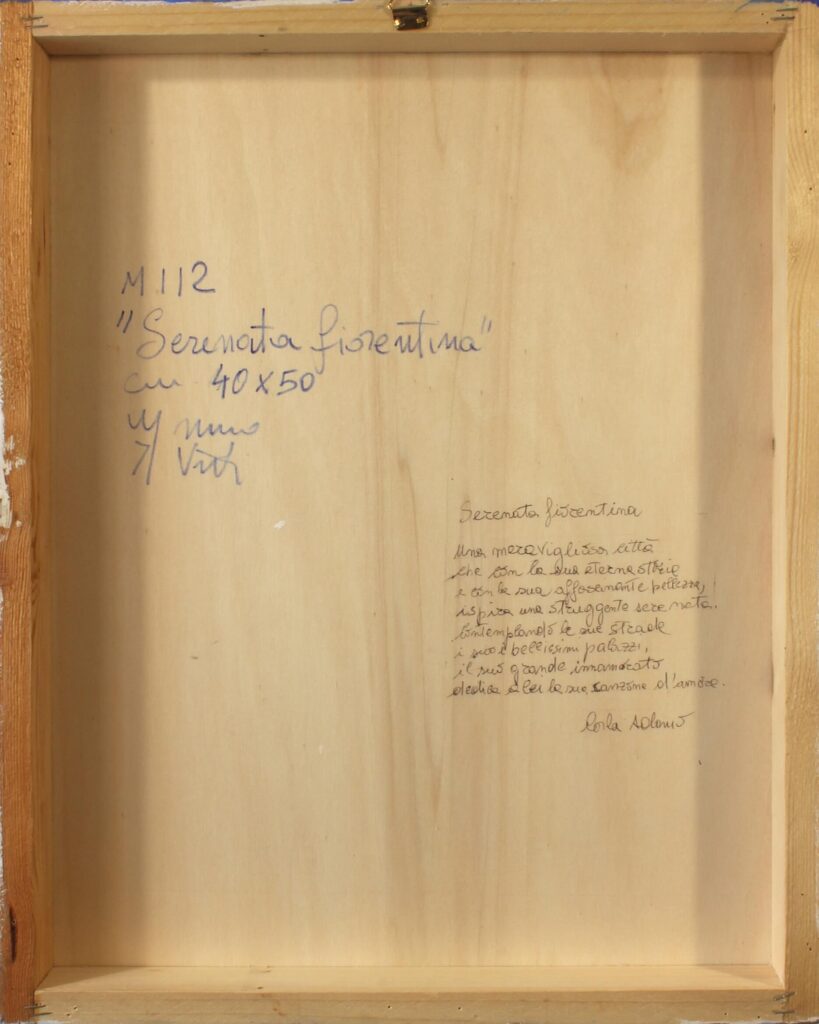 M 112
"Serenata fiorentina"
cm 40x50
Serenata fiorentina
Una meravigliosa città
che con la sua eterna storia
e con la sua affascinante bellezza,
ispira una struggente serenata.
Contemplando le sue strade
i suoi bellissimi palazzi,
il suo grande innamorato
dedica a lei la sua canzone d'amore.
Carla